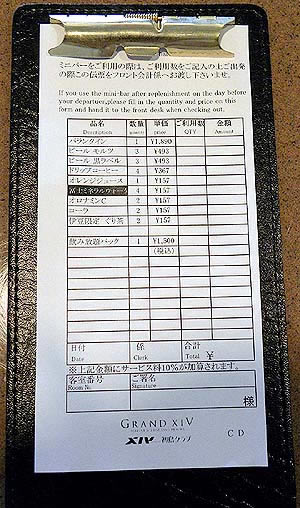 ミニバーをご利用の際は、ご利用数をご記入の上ご出発
の際この伝票をフロント会計係へお渡し下さいませ。
If you use the mini-bar after replenishment on the day before
your departuer,please fill in the quantity and price on this
form and hand it to the front desk when checking out.
品名 数量 単価 ご利用数 金額
Description price QTY Amount
バランタイン 1 ¥1,890
ビール モルツ 3 ¥493
ビール 黒ラベル 3 ¥493
ドリップコーヒー 4 ¥367
オレンジジュース 1 ¥157
富士ミネラルウォーター 4 ¥157
オロナミンC 2 ¥157
コーラ 2 ¥157
伊豆限定 ぐり茶 2 ¥157
飲み放題パック 1 ¥1,500
(税込)
日付 係 合計
Date Clerk Total ¥
※上記金額にサービス料10%が加算されます。
客室番号 ご署名
Room No. Signature
様
GRAND XIV
XIV 初島クラブ
C D